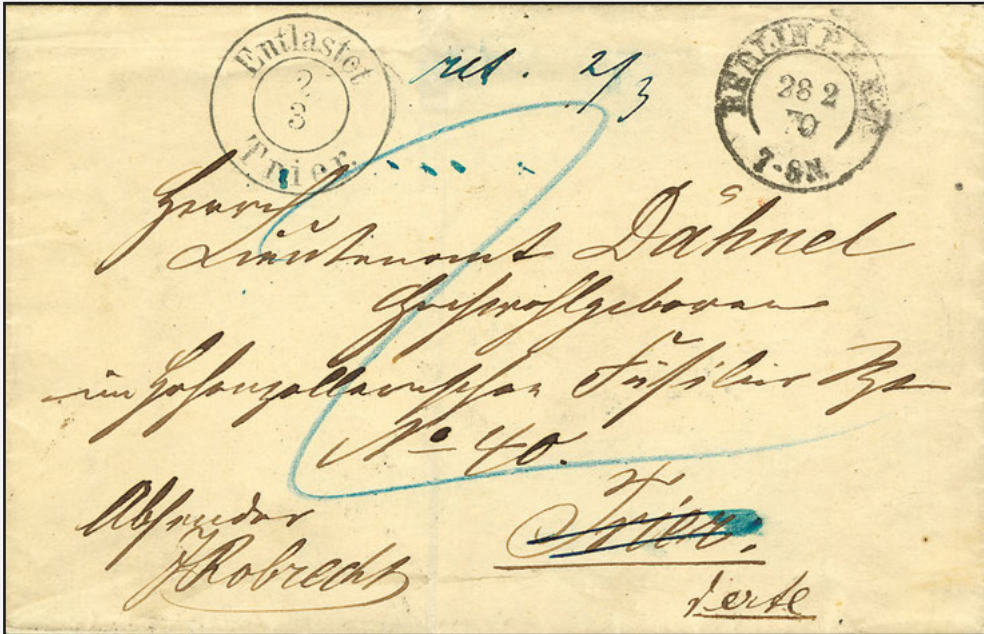 Entlastet
2
3
Trier.
ret. 2/3
BERLIN P.
28 2
70
7-8N.
Herrn
Lieutenant Dähnel
Hochwohlgeboren
im Hohenzollernschen Füsilier Rgt
No 40.
Trier.
verte
Absender
J Robrecht